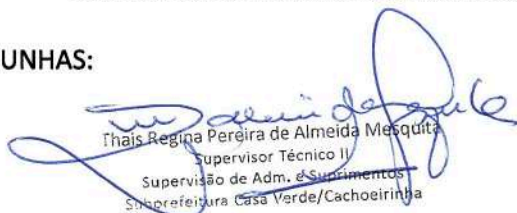 UNHAS:
Thais Regina Pereira de Almeida Mesquita
Supervisor Técnico II
Supervisão de Adm. e Suprimentos
Subprefeitura Casa Verde/Cachoeirinha